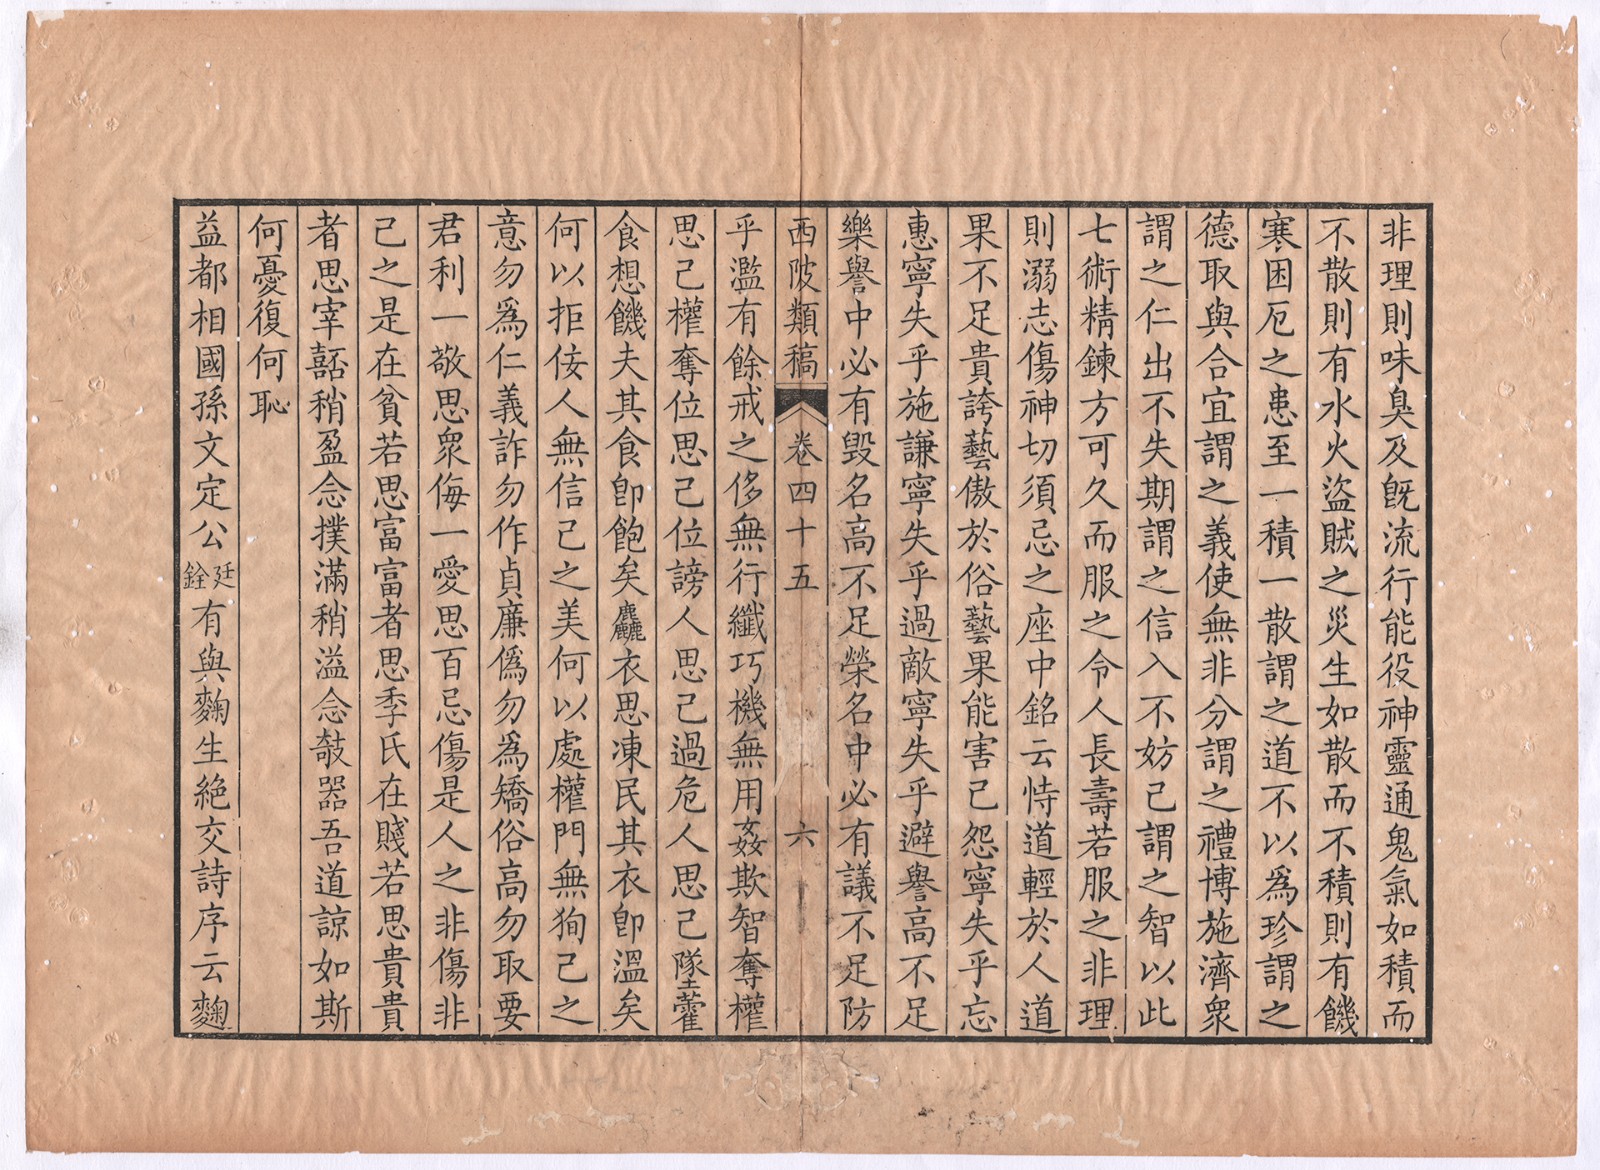 非理則味臭及旣流行能役神靈通鬼氣如積而
不散則有水火盜賊之災生如散而不積則有饑
寒困厄之患至一積一散謂之道不以爲珍謂之
德取與合宜謂之義使無非分謂之禮博施濟衆
謂之仁出不失期謂之信入不妨己謂之智以此
七術精鍊方可久而服之令人長壽若服之非理
則溺志傷神切須忌之座中銘云恃道輕於人道
果不足貴誇藝傲於俗藝果能害己怨寧失乎忘
惠寧失乎施謙寧失乎過敵寧失乎避譽高不足
樂譽中必有毀名高不足榮名中必有議不足防
西陂類稿 卷四十五 六
乎濫有餘戒之侈無行纖巧機無用姦欺智奪權
思己權奪位思己位謗人思己過危人思己墜藿
食想饑夫其食卽飽矣麤衣思凍民其衣卽溫矣
何以拒佞人無信己之美何以處權門無狥己之
意勿爲仁義詐勿作貞廉僞勿爲矯俗高勿取要
君利一敬思衆侮一愛思百忌傷是人之非傷非
己之是在貧若思富富者思季氏在賤若思貴貴
者思宰嚭稍盈念撲滿稍溢念攲器吾道諒如斯
何憂復何恥
益都相國孫文定公廷銓有與麴生絕交詩序云麴